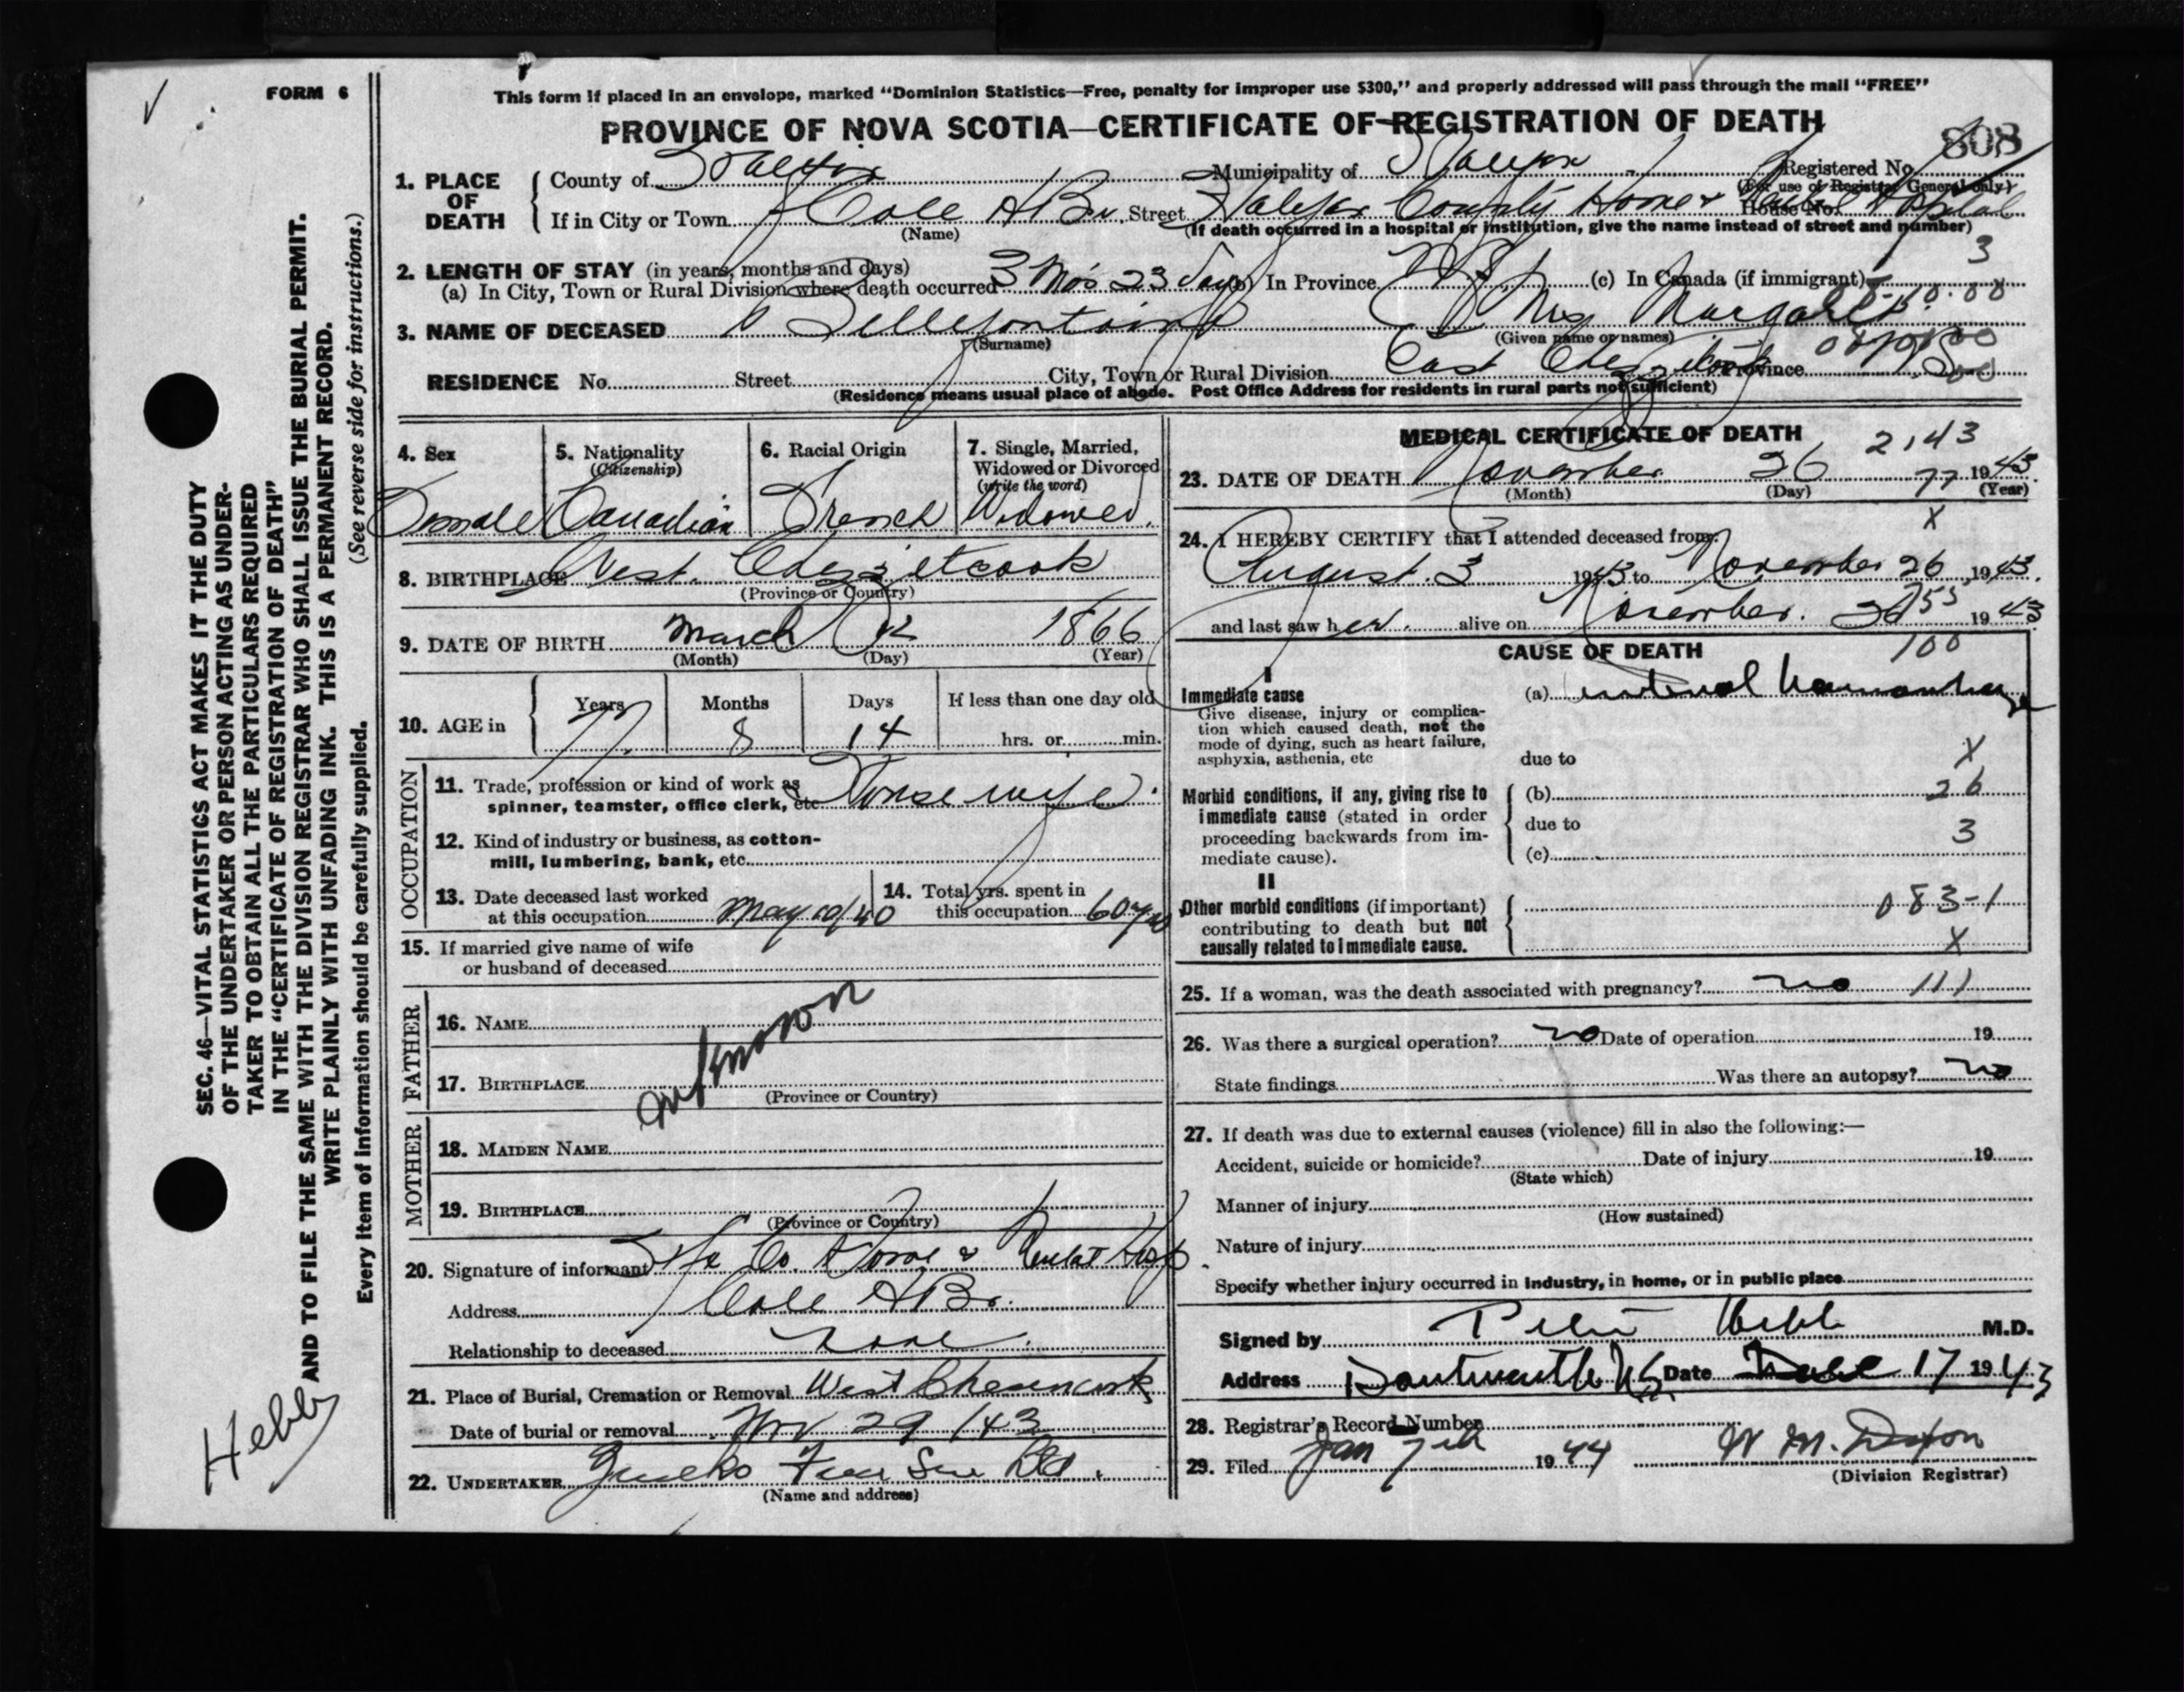 FORM 6
This form if placed in an envelope, marked “Dominion Statistics—Free, penalty for improper use $300,” and properly addressed will pass through the mail “FREE”
PROVINCE OF NOVA SCOTIA—CERTIFICATE OF REGISTRATION OF DEATH
808
1. PLACE OF DEATH
County of Halifax Municipality of Halifax Registered No.
(For use of Registrar General only)
If in City or Town Cole HBr Street Halifax County Home & Mental Hospital House No.
(Name) (If death occurred in a hospital or institution, give the name instead of street and number)
3
2. LENGTH OF STAY (in years, months and days)
(a) In City, Town or Rural Division where death occurred 3 Mos 23 days (b) In Province N.S. (c) In Canada (if immigrant)
3. NAME OF DECEASED Bellefontaine Mrs Margaret
(Surname) (Given name or names)
RESIDENCE No. Street City, Town or Rural Division East Chezzetcook Province N.S.
(Residence means usual place of abode. Post Office Address for residents in rural parts not sufficient)
4. Sex
Female
5. Nationality
(Citizenship)
Canadian
6. Racial Origin
French
7. Single, Married,
Widowed or Divorced
(write the word)
Widowed.
8. BIRTHPLACE West Chezzetcook
(Province or Country)
9. DATE OF BIRTH March 12 1866
(Month) (Day) (Year)
10. AGE in
Years Months Days If less than one day old
77 8 14 hrs. or min.
OCCUPATION
11. Trade, profession or kind of work as
spinner, teamster, office clerk, etc House wife.
12. Kind of industry or business, as cotton-
mill, lumbering, bank, etc.
13. Date deceased last worked
at this occupation May 10/40
14. Total yrs. spent in
this occupation 60 yrs
15. If married give name of wife
or husband of deceased
FATHER
16. NAME
unknown
17. BIRTHPLACE
(Province or Country)
MOTHER
18. MAIDEN NAME
19. BIRTHPLACE
(Province or Country)
20. Signature of informant Hfx Co. Home & Mental Hosp.
Address Cole HBr.
Relationship to deceased None.
21. Place of Burial, Cremation or Removal West Chezzencook
Date of burial or removal Nov 29 /43
22. UNDERTAKER
(Name and address)
MEDICAL CERTIFICATE OF DEATH
2143
23. DATE OF DEATH November 26 1943.
(Month) (Day) (Year)
77
X
24. I HEREBY CERTIFY that I attended deceased from:
August 3 1943 to November 26, 1943.
and last saw her alive on November 26 1943
CAUSE OF DEATH
100
I
Immediate cause
Give disease, injury or complica-
tion which caused death, not the
mode of dying, such as heart failure,
asphyxia, asthenia, etc
(a) internal haemorrhage
due to
X
Morbid conditions, if any, giving rise to
immediate cause (stated in order
proceeding backwards from im-
mediate cause).
(b) 26
due to
3
(c)
II
Other morbid conditions (if important)
contributing to death but not
causally related to immediate cause.
083-1
X
25. If a woman, was the death associated with pregnancy? no 111
26. Was there a surgical operation? no Date of operation 19
State findings Was there an autopsy? no
27. If death was due to external causes (violence) fill in also the following:—
Accident, suicide or homicide? Date of injury 19
(State which)
Manner of injury
(How sustained)
Nature of injury
Specify whether injury occurred in Industry, in home, or in public place
Signed by Peter Hebb M.D.
Address Dartmouth NS Date 17 1943
28. Registrar's Record Number
29. Filed Jan 7th 1944 W. M. Dixon
(Division Registrar)
SEC. 46—VITAL STATISTICS ACT MAKES IT THE DUTY
OF THE UNDERTAKER OR PERSON ACTING AS UNDER-
TAKER TO OBTAIN ALL THE PARTICULARS REQUIRED
IN THE “CERTIFICATE OF REGISTRATION OF DEATH”
AND TO FILE THE SAME WITH THE DIVISION REGISTRAR WHO SHALL ISSUE THE BURIAL PERMIT.
WRITE PLAINLY WITH UNFADING INK. THIS IS A PERMANENT RECORD.
Every item of information should be carefully supplied. (See reverse side for instructions.)
Hebb